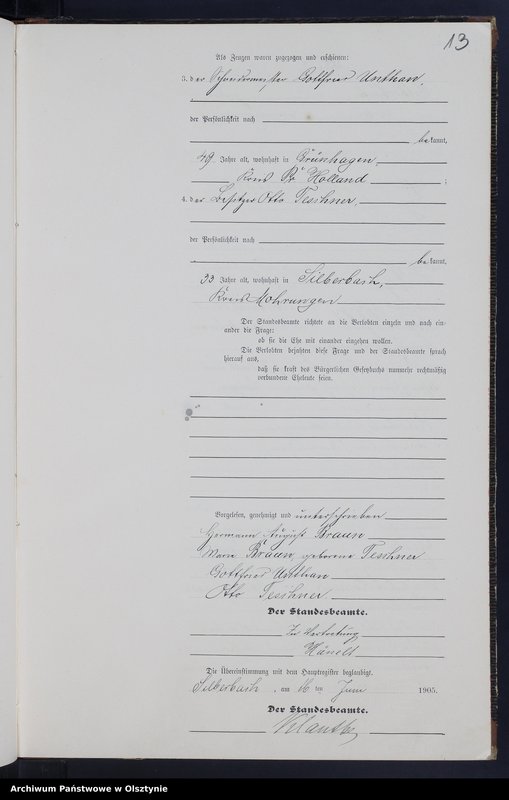 13
Als Zeugen waren zugezogen und erschienen:
3. der Schneidermeister Gottfried Unthan,
der Persönlichkeit nach
bekannt,
49 Jahre alt, wohnhaft in Grünhagen
Kreis Pr Holland ;
4. der Besitzer Otto Teschner
der Persönlichkeit nach
bekannt,
33 Jahre alt, wohnhaft in Silberbach,
Kreis Mohrungen
Der Standesbeamte richtete an die Verlobten einzeln und nach ein-
ander die Frage:
ob sie die Ehe mit einander eingehen wollen.
Die Verlobten bejahten diese Frage und der Standesbeamte sprach
hierauf aus,
daß sie kraft des Bürgerlichen Gesetzbuchs nunmehr rechtmäßig
verbundene Eheleute seien.
Vorgelesen, genehmigt und unterschrieben
Hermann August Braun
Braun geborene Teschner
Gottfried Unthan
Otto Teschner
Der Standesbeamte.
In Vertretung
Die Übereinstimmung mit dem Hauptregister beglaubigt.
Silberbach, am 16 ten Juni 1905.
Der Standesbeamte.
Archiwum Państwowe w Olsztynie